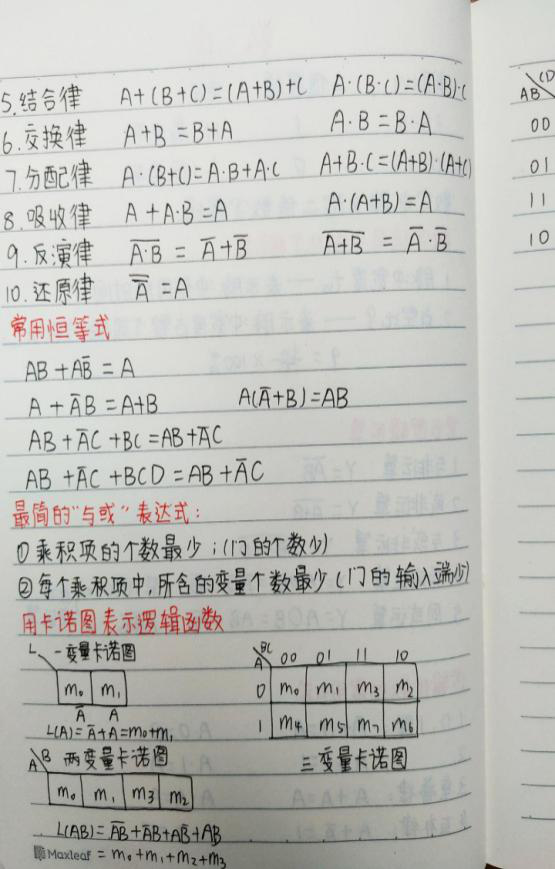 5.结合律 A+(B+C)=(A+B)+C A·(B·C)=(A·B)·C
6.交换律 A+B=B+A A·B=B·A
7.分配律 A·(B+C)=A·B+A·C A+B·C=(A+B)·(A+C)
8.吸收律 A+A·B=A A·(A+B)=A
9.反演律 \overline{A·B}=\overline{A}+\overline{B} \overline{A+B}=\overline{A}·\overline{B}
10.还原律 \overline{\overline{A}}=A
常用恒等式
AB+A\overline{B}=A
A+\overline{A}B=A+B A(\overline{A}+B)=AB
AB+\overline{A}C+BC=AB+\overline{A}C
AB+\overline{A}C+BCD=AB+\overline{A}C
最简的"与或"表达式:
①乘积项的个数最少;(门的个数少)
②每个乘积项中,所含的变量个数最少(门的输入端少)
用卡诺图表示逻辑函数
L 一变量卡诺图
m₀ m₁
\overline{A} A
L(A)=\overline{A}+A=m₀+m₁
A B 两变量卡诺图
m₀ m₁ m₃ m₂
L(AB)=\overline{A}\overline{B}+\overline{A}B+A\overline{B}+AB
=m₀+m₁+m₂+m₃
Maxleaf
A BC 00 01 11 10
0 m₀ m₁ m₃ m₂
1 m₄ m₅ m₇ m₆
三变量卡诺图
AB CD
00
01
11
10